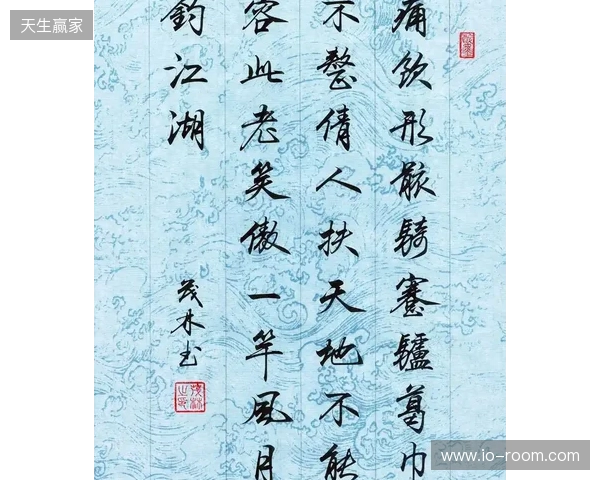 天生赢家
痛飲形骸騎蹇驢葛巾
不整倩人扶天地不能
容此老笑傲一竿風月
釣江湖
茂林书
www.io-room.com